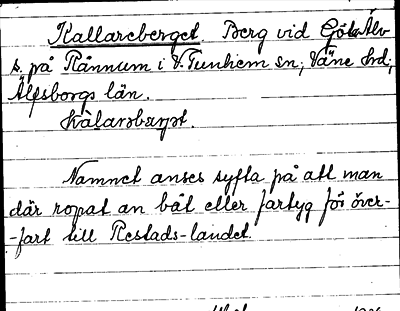 Kallareberget. Berg vid Göta Älv
s. på Rånnum i V. Tunhem sn; Väne hd;
Älfsborgs län.

Namnet anses syfta på att man
där ropat an båt eller fartyg för över-
-fart till Restads-landet.